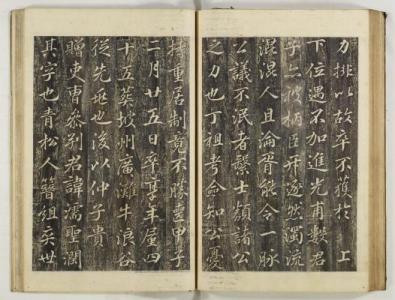 力排以故卒不獲於 上
下位遇不加進光甫數君
子彼柄臣斥逐然濁流
混混人且淪胥能令一脉
公議不泯者繄士類諸公
之力也丁祖考僉知公憂
持重居制竟不勝喪甲子
二月廿五日卒享年僅四
十五葬坡州廣灘牛浪谷
從先也後以仲子貴
贈吏曹參判君諱濡聖潤
其字也青松人簪組奕世